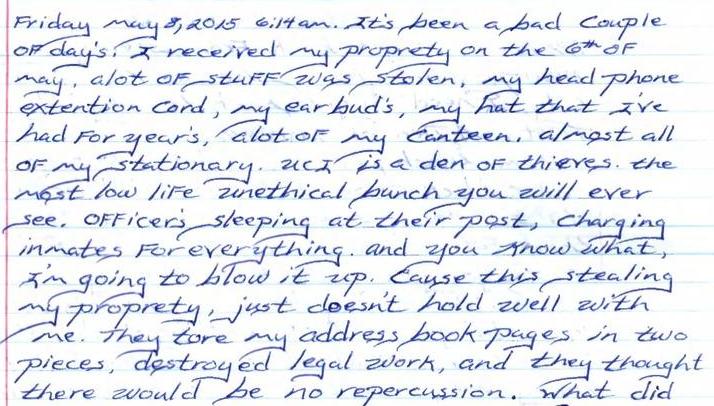 Friday may 8, 2015 6:14am. It's been a bad couple
OF day's. I received my proprety on the 6th OF
may. alot OF stuFF was stolen, my head phone
extention cord, my ear bud's, my hat that I've
had For year's, alot OF my canteen. almost all
OF my stationary. UCI is a den OF thieves. the
most low liFe unethical bunch you will ever
see. OFFicer's sleeping at their post, charging
inmates For everything. and you know what,
I'm going to blow it up. Cause this stealing
my proprety, just doesn't hold well with
me. They tore my address book pages in two
pieces, destroyed legal work, and they thought
there would be no repercussion. What did